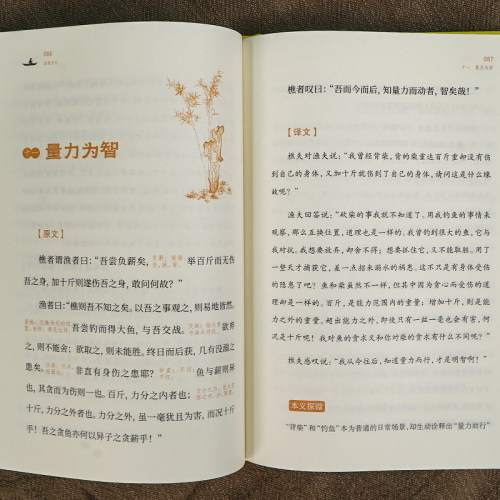 086
十一 量力为智
【原文】
樵者谓渔者曰：“吾尝负薪矣，举百斤而无伤
吾之身，加十斤则遂伤吾之身，敢问何故？”
渔者曰：“樵则吾不知之矣。以吾之事观之，则易地皆然。
吾尝钓而得大鱼，与吾交战。欲弃
之，则不能舍；欲取之，则未能胜。终日而后获，几有没溺之
患矣。非直有身伤之患耶？鱼与薪则异
也，其贪而为伤则一也。百斤，力分之内者也；
十斤，力分之外者也。力分之外，虽一毫犹且为害，而况十斤
乎！吾之贪鱼亦何以异子之贪薪乎！”
087
十一 量力为智
樵者叹曰：“吾而今而后，知量力而动者，智矣哉！”
【译文】
樵夫对渔夫说：“我曾经背柴，背的柴重达百斤重却没有伤
到自己的身体，又加十斤就伤到了自己的身体。请问这是什么缘
故呢？”
渔夫回答说：“砍柴的事我就不知道了。用我钓鱼的事情来
观察，那么互换位置，道理也是一样的。我曾钓到很大的鱼，它与
我对抗。我想要放弃，却舍不得；想要抓住它，又不能取胜。用了
一整天才捕获它，是一直招来溺水的祸患。这不只是有身体受伤
的隐患了吧？鱼和柴虽然不一样，但其中因为贪心而受伤的道
理却是一样的。百斤，是能力范围内的重量；增加十斤，则是能
力之外的重量。超出能力之外，即使只有一丝一毫也会有害，何
况是十斤呢！我对鱼的贪求又和你对柴的贪求有什么不同呢？”
樵夫感叹说：“我从今往后，知道量力而行，才是明智啊！”
本义探蹟
“背柴”和“钓鱼”本为普通的日常场景，却生动诠释出“量力而行”